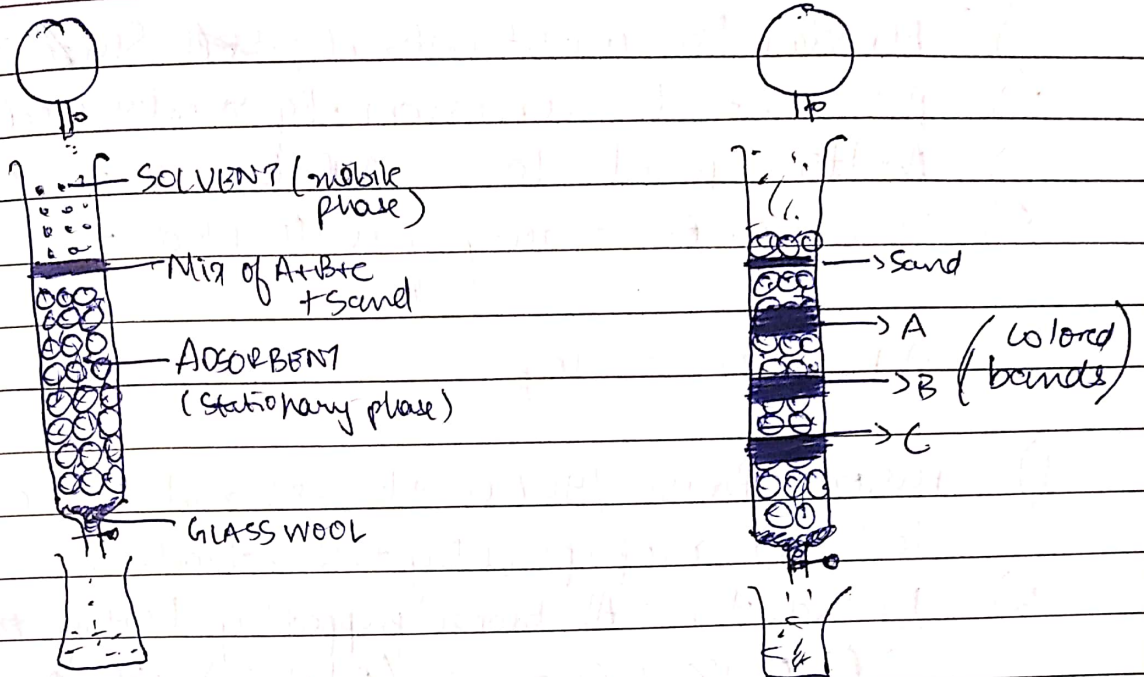 SOLVENT (mobile
phase)
Mix of A+B+C
+ Sand
ADSORBENT
(Stationary phase)
GLASS WOOL
Sand
A
B
C
(Colored
bands)